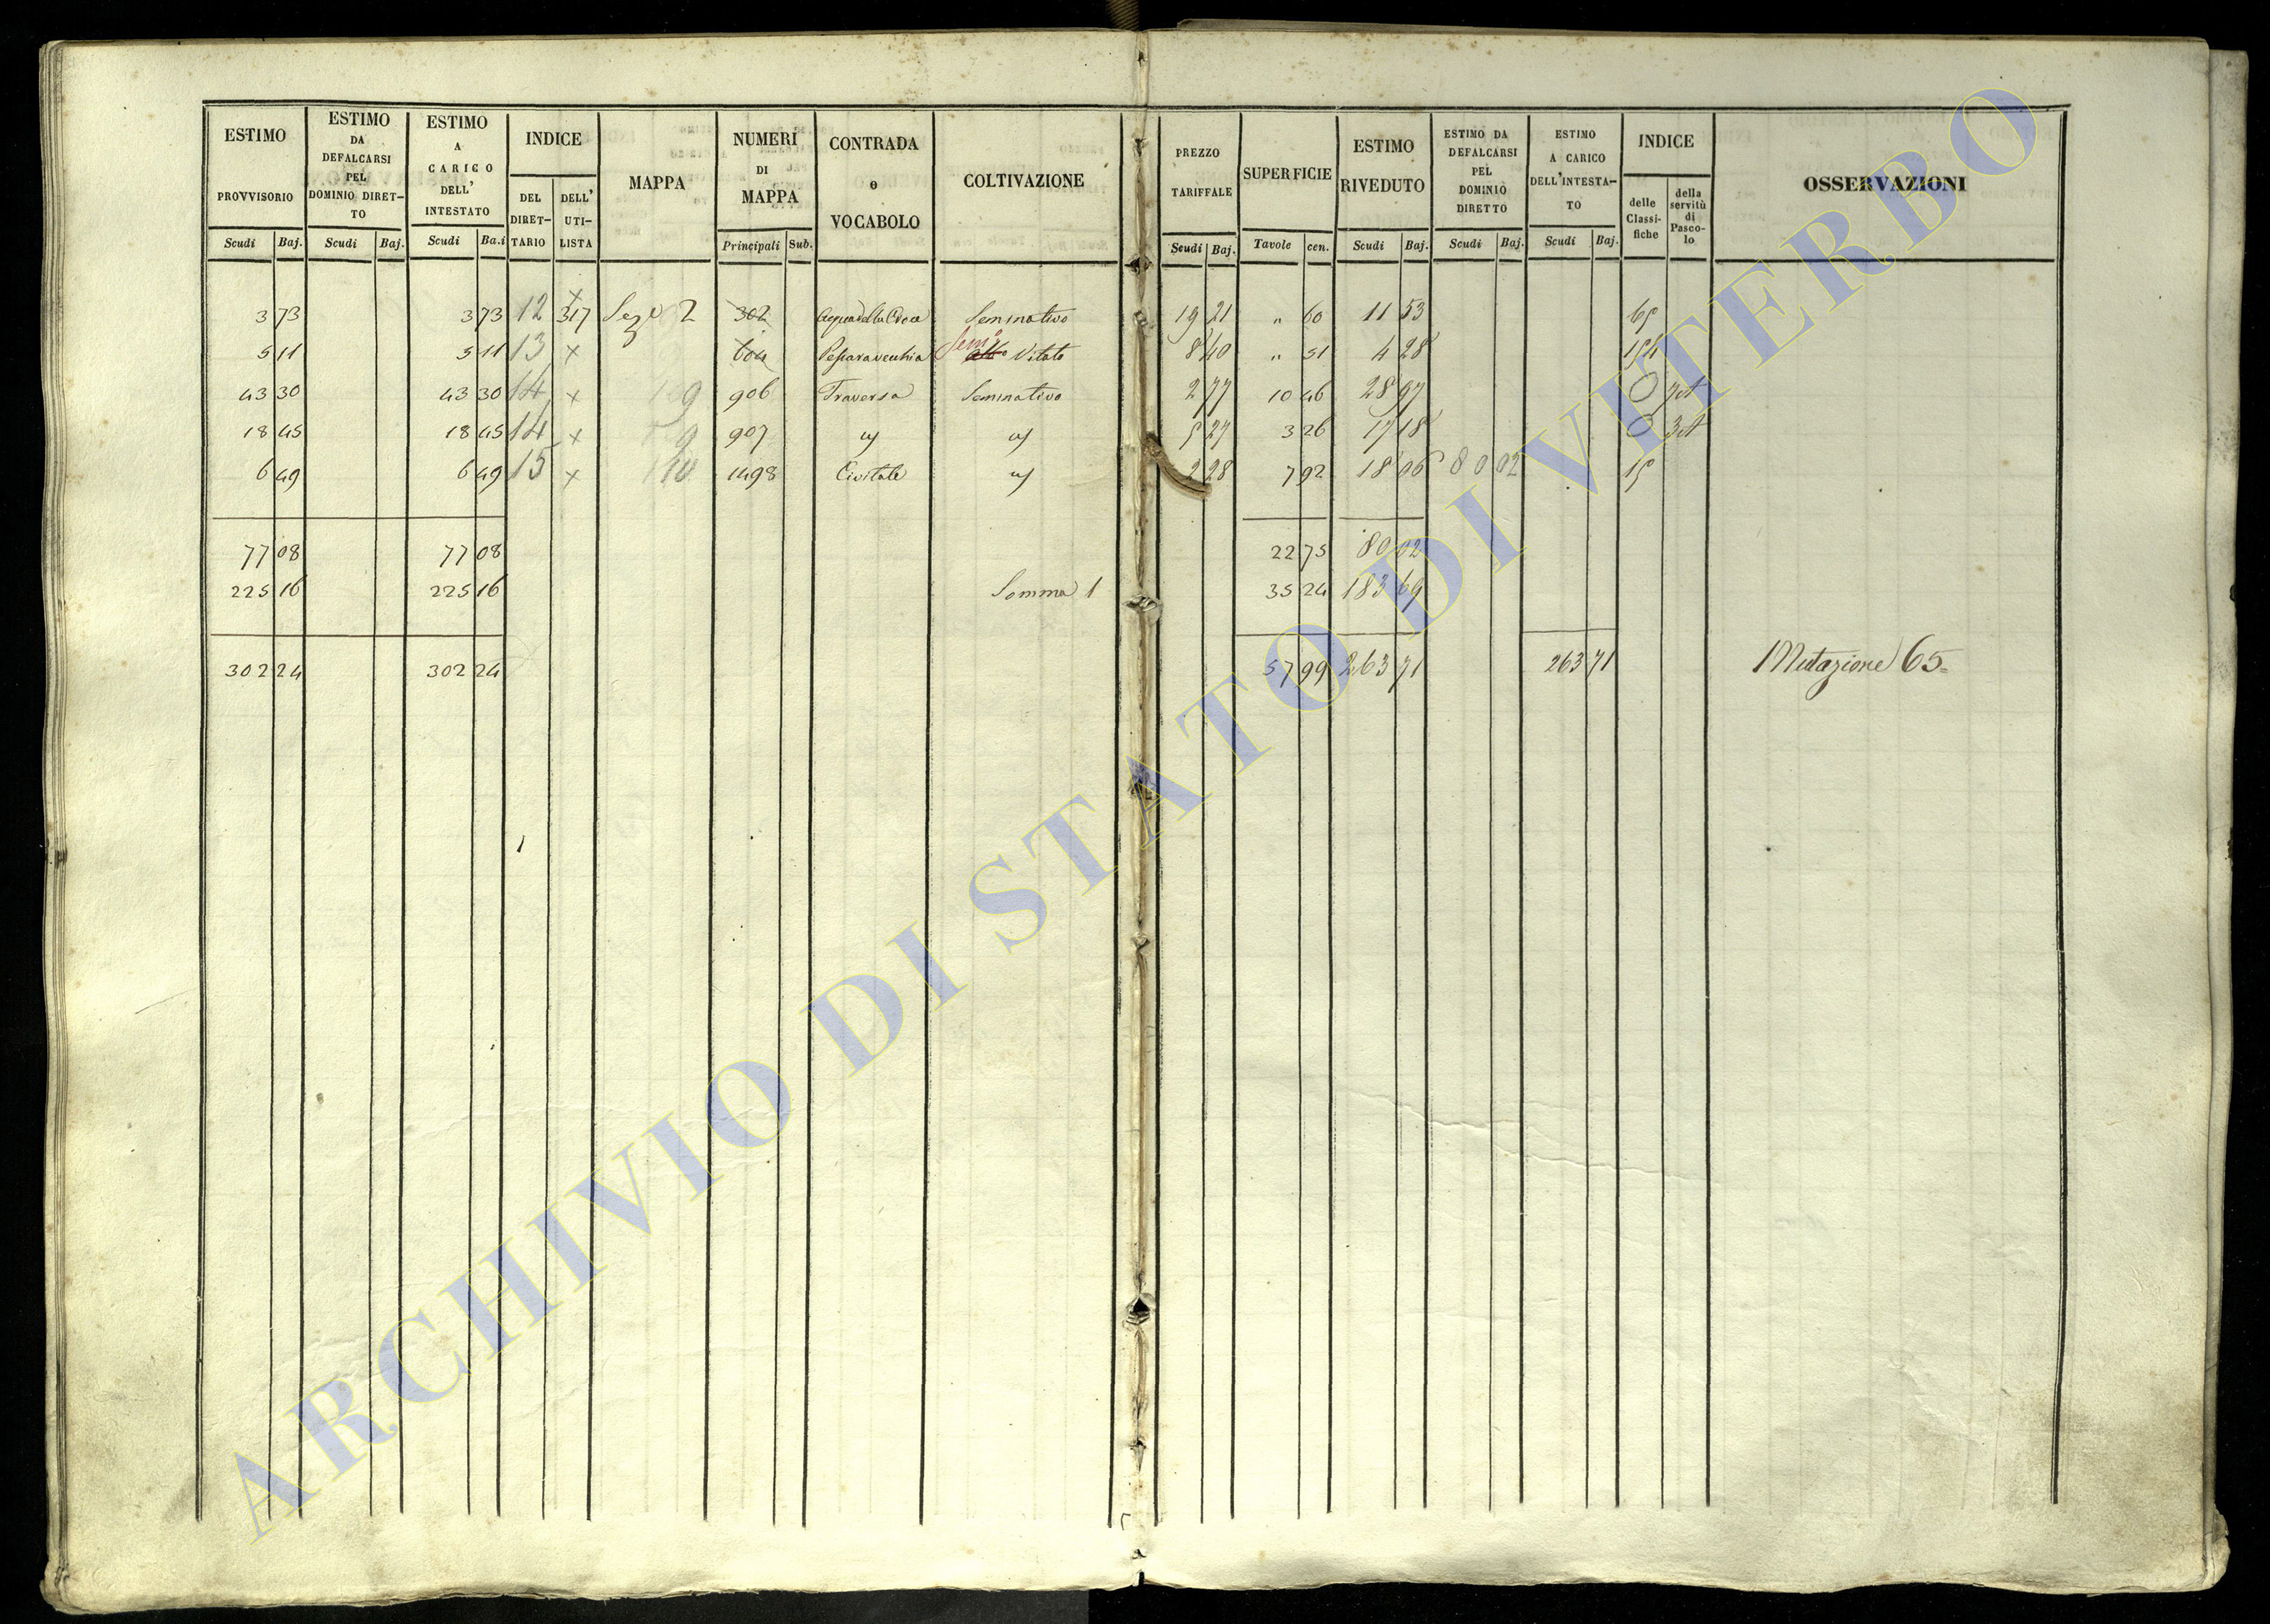 ESTIMO PROVVISORIO Scudi Baj.
ESTIMO DA DEFALCARSI PEL DOMINIO DIRETTO Scudi Baj.
ESTIMO A CARICO DELL' INTESTATO Scudi Ba.i
INDICE DEL DIRETTARIO DELL' UTILISTA
MAPPA
NUMERI DI MAPPA Principali Sub.
CONTRADA o VOCABOLO
COLTIVAZIONE
PREZZO TARIFFALE Scudi Baj.
SUPERFICIE Tavole cen.
ESTIMO RIVEDUTO Scudi Baj.
ESTIMO DA DEFALCARSI PEL DOMINIO DIRETTO Scudi Baj.
ESTIMO A CARICO DELL'INTESTATO Scudi Baj.
INDICE delle Classifiche della servitù di Pascolo
OSSERVAZIONI
3 73 3 73 12 x 317 Sez 2 302 Seminativo 19 21 " 60 11 53
5 11 5 11 13 x 604 Vitato 8 40 " 51 4 28
43 30 43 30 14 x 9 906 Traversa Seminativo 2 77 10 46 28 97
18 45 18 45 14 x 9 907 5 27 3 26 17 18
6 49 6 49 15 x 10 1498 Civitale 2 28 7 92 18 06 80 02
77 08 77 08 22 75 80 02
225 16 225 16 Somma 1 35 24 183 69
302 24 302 24 57 99 263 71 263 71 Mutazione 65
ARCHIVIO DI STATO DI VITERBO